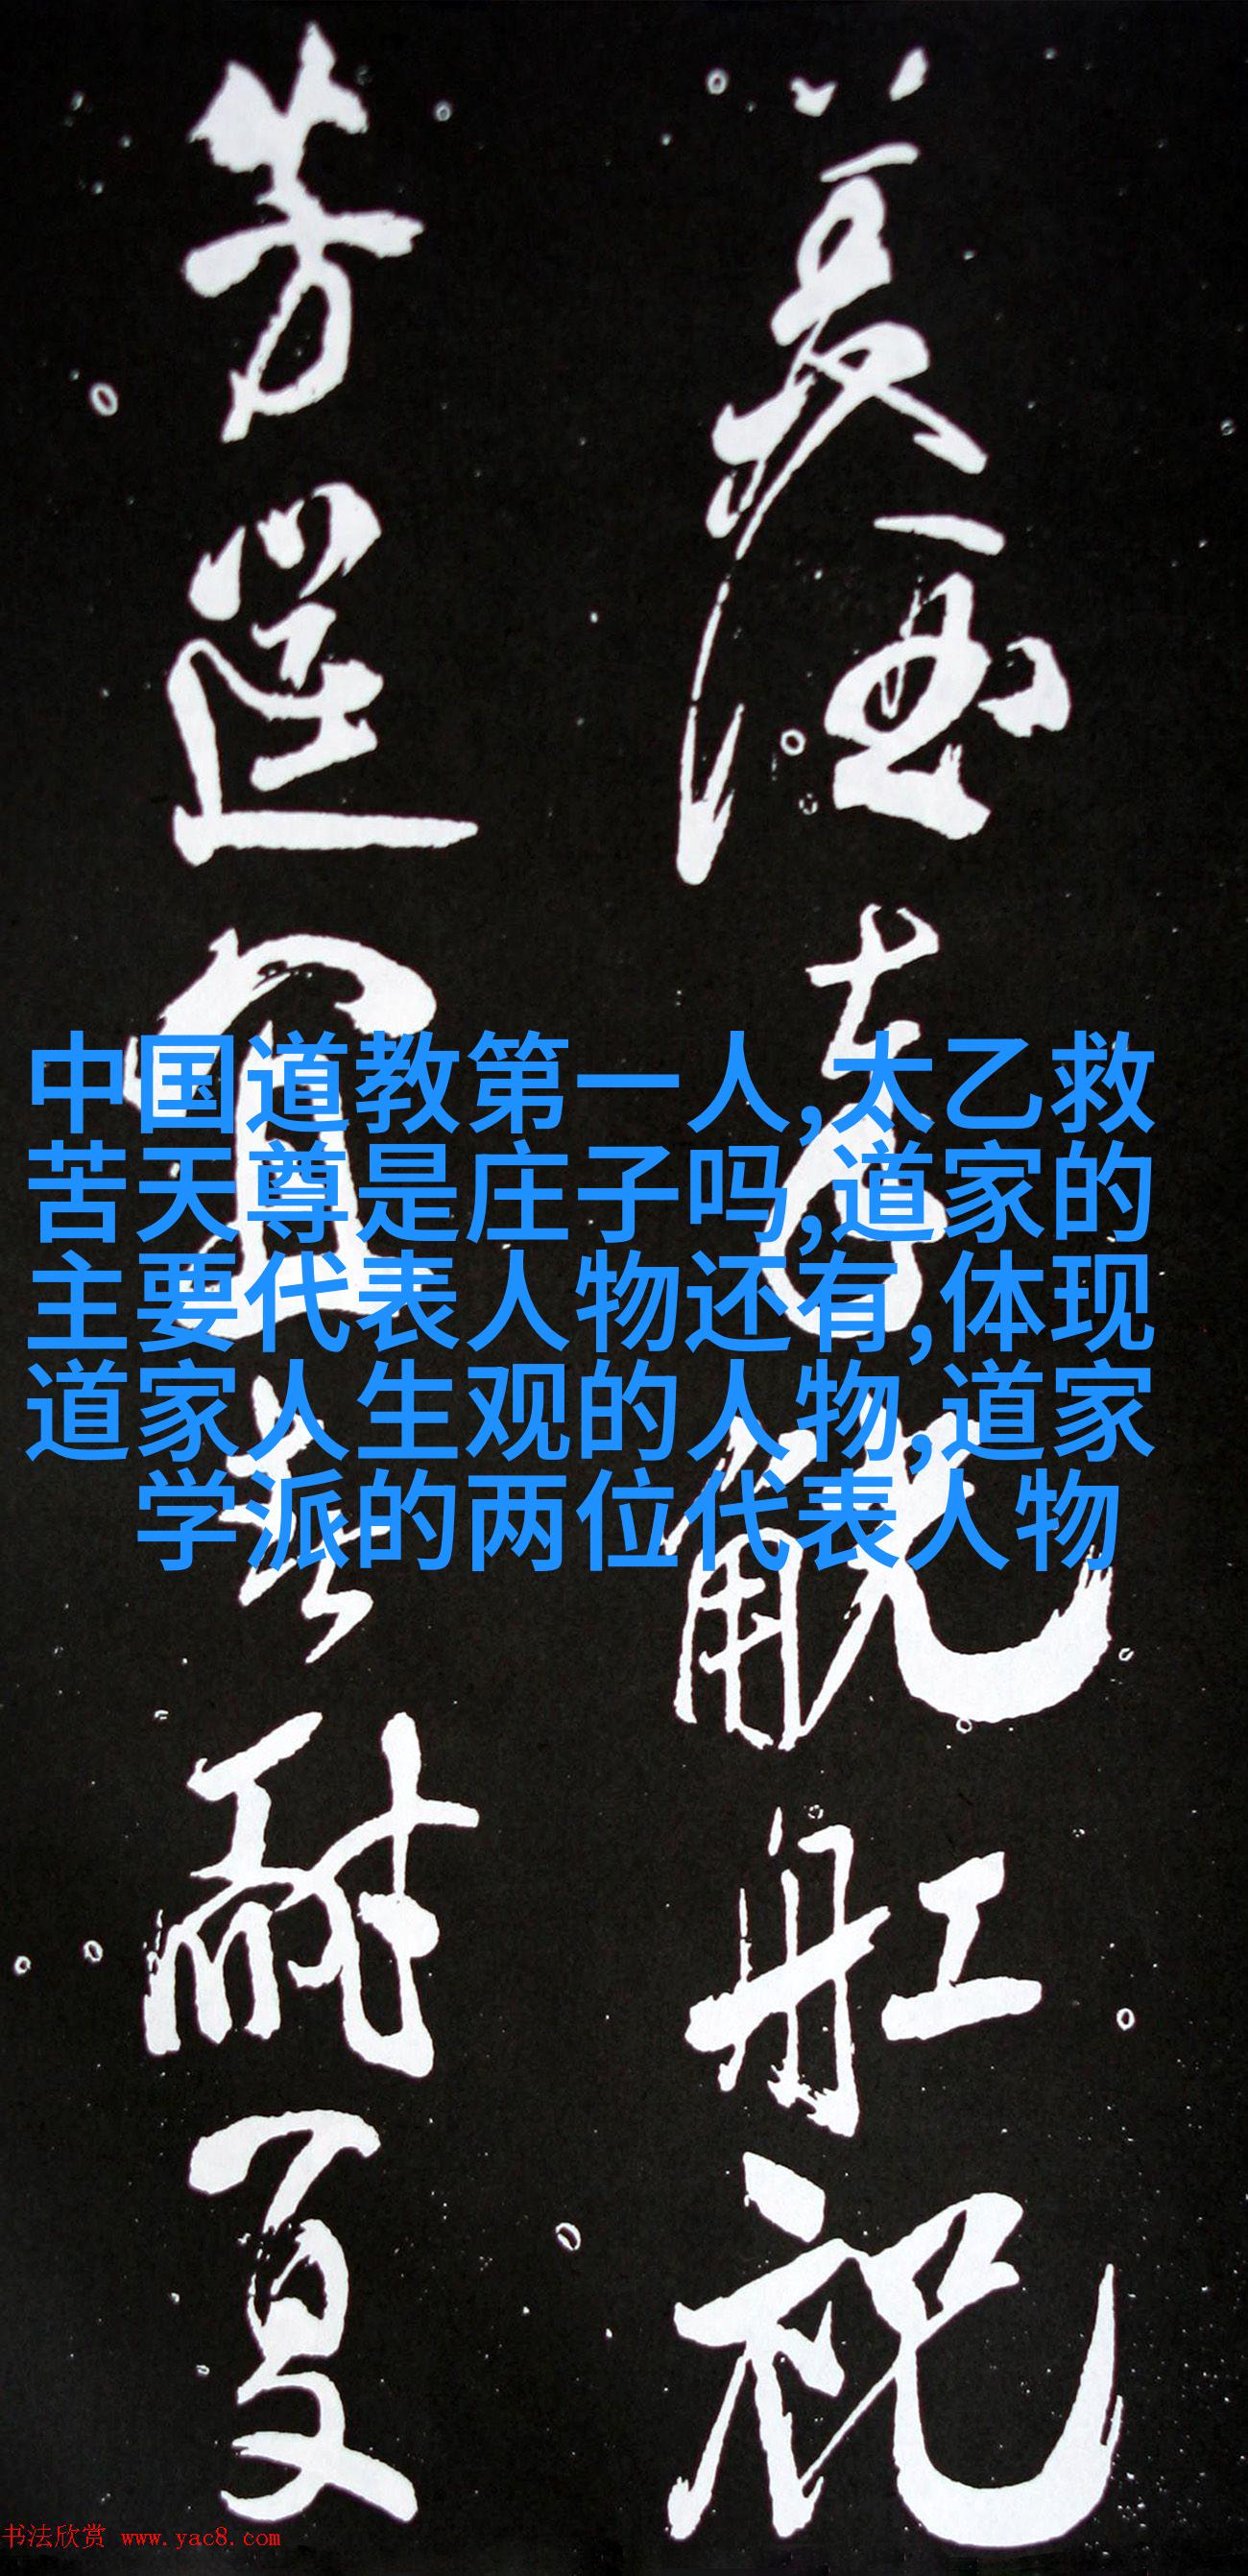 觥舡祝
芳筵宜春耐夏
中国道教第一人,太乙救
苦天尊是庄子吗,道家的
主要代表人物还有,体现
道家人生观的人物,道家
学派的两位代表人物
书法欣赏 www.yac8.com